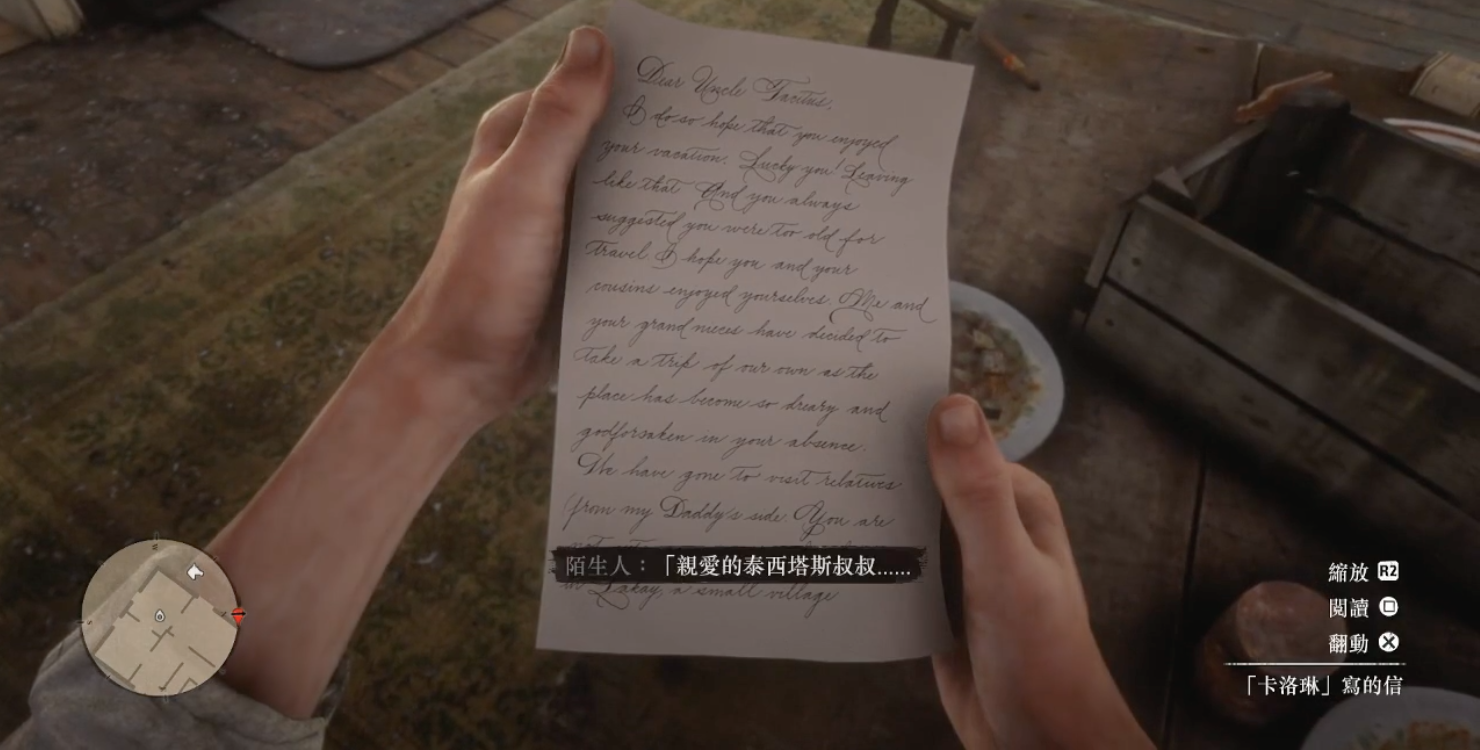 Dear Uncle Tacitus,
I do so hope that you enjoyed
your vacation. Lucky you! Leaving
like that. And you always
suggested you were too old for
travel I hope you and your
cousins enjoyed yourselves. Me and
your grand nieces have decided to
take a trip of our own as the
place has become so dreary and
godforsaken in your absence.
We have gone to visit relatives
from my Daddy's side. You are
陌生人：「親愛的泰西塔斯叔叔......
in Lakay, a small village
縮放 R2
閱讀
翻動
「卡洛琳」寫的信